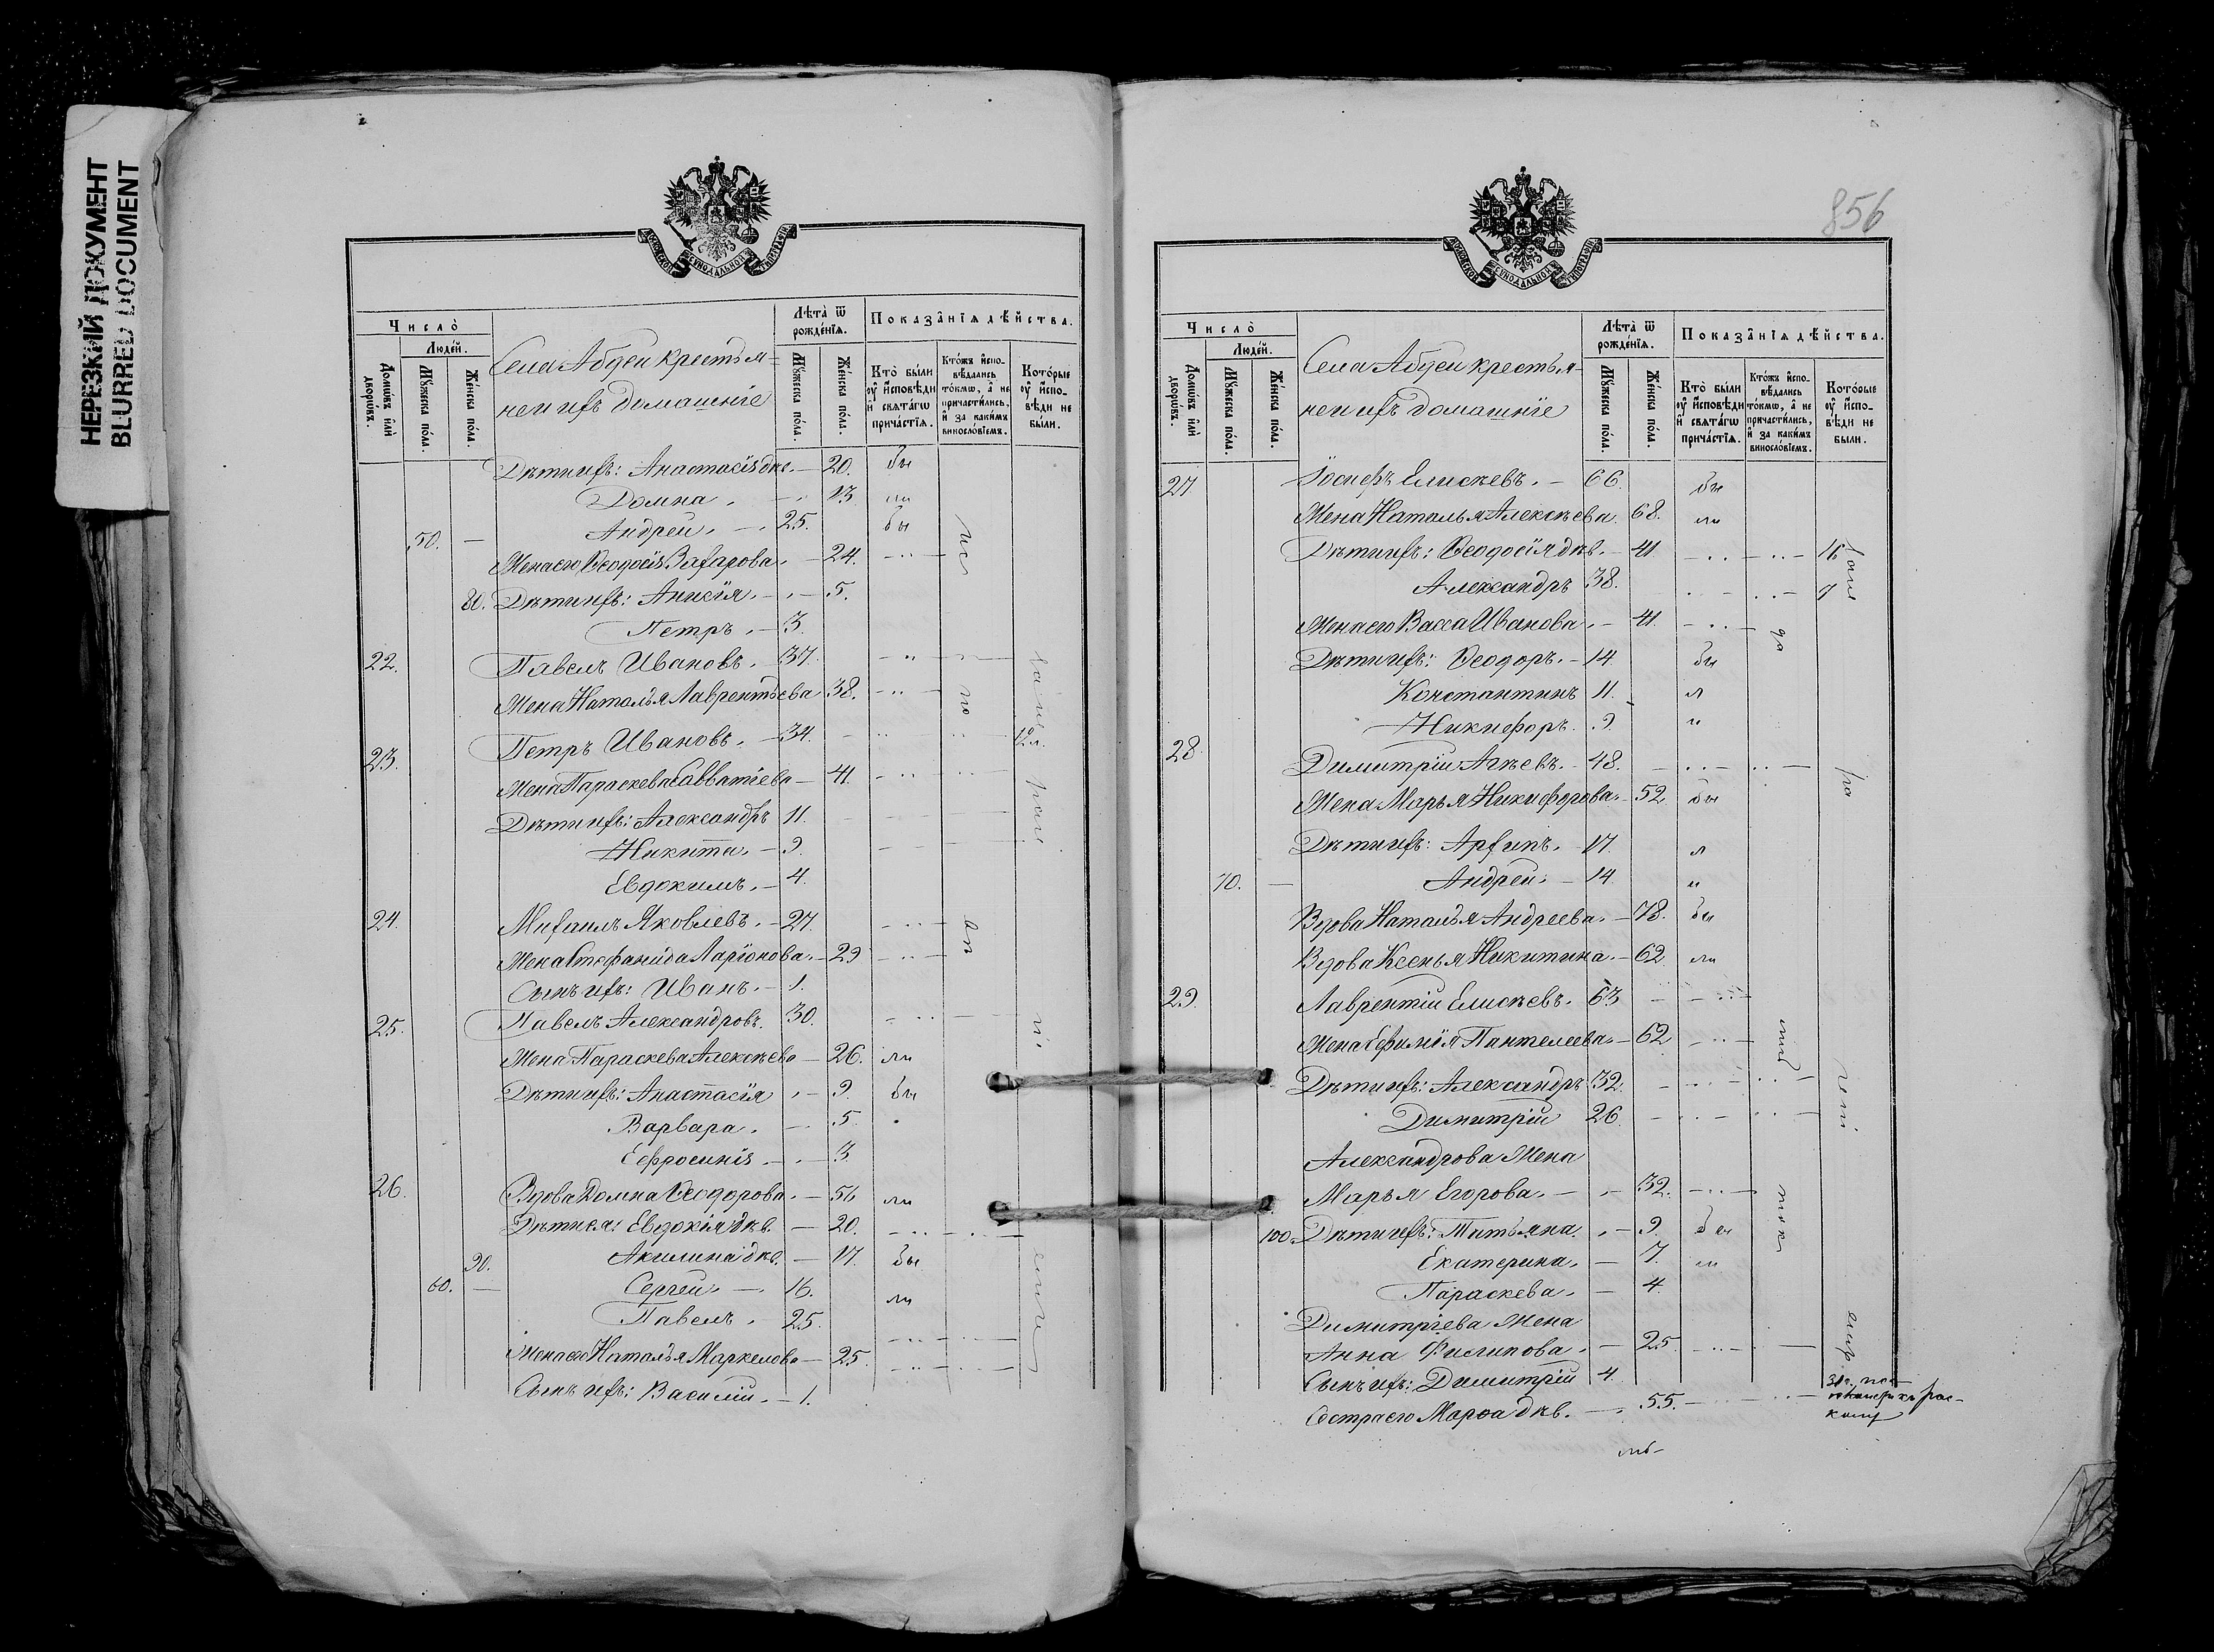 НЕРЕЗКИЙ ДОКУМЕНТ
BLURRED DOCUMENT
МОСКОВСКОЙ СѴНОДАЛЬНОЙ ТИПОГРАФІИ
Число̀
Домѡвъ и҆лѝ дворѡвъ.
Люде́й.
Мꙋ́жеска по́ла.
Же́нска по́ла.
Села Абдеи крестья-
не и ихъ домашніе
Лѣта̀ ѿ рожде́нїѧ.
Мꙋ́жеска по́ла.
Же́нска по́ла.
Показа̑нїѧ дѣ́йства.
Кто̀ бы́ли ᲂу҆ и҆́сповѣди и҆ свѧта́гѡ прича́стїѧ.
Кто́жъ и҆спо-вѣ́дались то́кмѡ, а҆ не причасти́лись, и҆ за каки́мъ виносло́вїемъ.
Кото́рые ᲂу҆ и҆́спо-вѣди не бы́ли.
Дѣти ихъ: Анастасія дѣв. — 20. бы
Домна. — 13. ли
50. — Андрей. — 25. бы
Жена его Ѳеодосія Захарова. — 24.
80. Дѣти ихъ: Анисія. — 5.
Петръ. — 3.
22. Павелъ Ивановъ. — 37.
Жена Наталья Лаврентьева 38.
23. Петръ Ивановъ. — 34. 12 л.
Жена Параскева Савватіева — 41.
Дѣти ихъ: Александръ 11.
Никита. — 9.
Евдокимъ. — 4.
24. Михаилъ Яковлевъ. — 27.
Жена Стефанида Ларіонова. — 29
Сынъ ихъ: Иванъ. — 1.
25. Павелъ Александровъ. 30.
Жена Параскева Алексѣева — 26. ли
Дѣти ихъ: Анастасія — 9. бы
Варвара. — 5.
Ефросинія. — 3.
26. Вдова Домна Ѳеодорова. — 56 ли
Дѣти ея: Евдокія дѣв. — 20.
90. Акилина дѣв. — 17. бы
60. — Сергей. — 16. ли
Павелъ. 25.
Жена его Наталья Маркелова — 25.
Сынъ ихъ: Василій. — 1.
856
МОСКОВСКОЙ СѴНОДАЛЬНОЙ ТИПОГРАФІИ
Число̀
Домѡвъ и҆лѝ дворѡвъ.
Люде́й.
Мꙋ́жеска по́ла.
Же́нска по́ла.
Села Абдеи крестья-
не и ихъ домашніе
Лѣта̀ ѿ рожде́нїѧ.
Мꙋ́жеска по́ла.
Же́нска по́ла.
Показа̑нїѧ дѣ́йства.
Кто̀ бы́ли ᲂу҆ и҆́сповѣди и҆ свѧта́гѡ прича́стїѧ.
Кто́жъ и҆спо-вѣ́дались то́кмѡ, а҆ не причасти́лись, и҆ за каки́мъ виносло́вїемъ.
Кото́рые ᲂу҆ и҆́спо-вѣди не бы́ли.
27. Іосифъ Елисѣевъ. — 66. бы
Жена Наталья Алексѣева. 68. ли
Дѣти ихъ: Ѳеодосія дѣв. — 41. 16
Александръ 38. 9
Жена его Васса Иванова. — 41.
Дѣти ихъ: Ѳеодоръ. — 14. бы
Константинъ 11. л
Никифоръ. 9. и
28. Димитрій Агѣевъ. — 48.
Жена Марья Никифорова. — 52. бы
Дѣти ихъ: Архипъ. — 17. л
70. — Андрей. — 14. и
Вдова Наталья Андреева. — 78. бы
Вдова Ксенья Никитина. — 62. ли
29. Лаврентій Елисѣевъ. 63
Жена Ефимія Пантелеева. — 62
Дѣти ихъ: Александръ 32.
Димитрій 26.
Александрова Жена
Марья Егорова. — 32.
100. Дѣти ихъ: Татьяна. — 9. бы
Екатерина. — 7. ли
Параскева. — 4.
Димитріева Жена
Анна Филипова. — 25.
Сынъ ихъ: Димитрій 4.
Сестра его Марѳа дѣв. — 55.